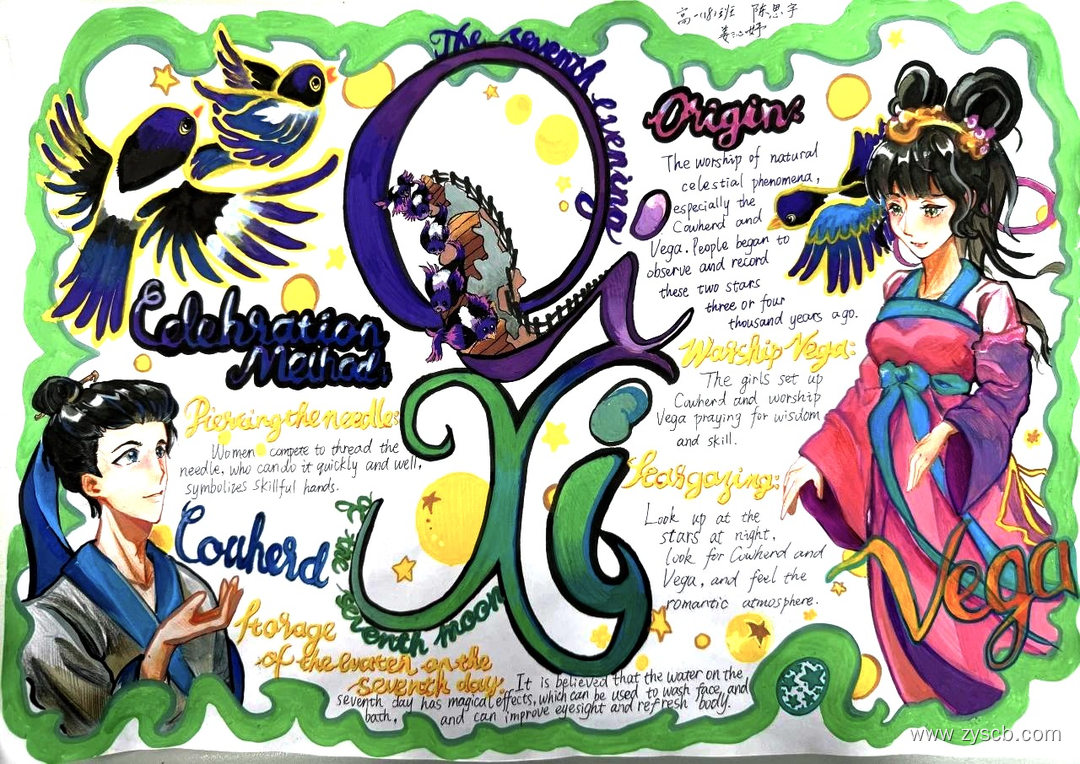 高一18班 陈思宇
The seventh evening
Qi
Xi
of the seventh moon
Origin:
The worship of natural
celestial phenomena,
especially the
Cowherd and
Vega. People began to
observe and record
these two stars
three or four
thousand years ago.
Warship Vega:
The girls set up
Cowherd and worship
Vega praying for wisdom
and skill.
Stargazing:
Look up at the
stars at night,
look for Cowherd and
Vega, and feel the
romantic atmosphere.
Vega
Celebration
Method:
Piercing the needle:
Women compete to thread the
needle, who can do it quickly and well,
symbolizes skillful hands.
Cowherd
Storage
of the water on the
seventh day:
It is believed that the water on the
seventh day has magical effects, which can be used to wash face, and
bath, and can improve eyesight and refresh body.
www.zyscb.com